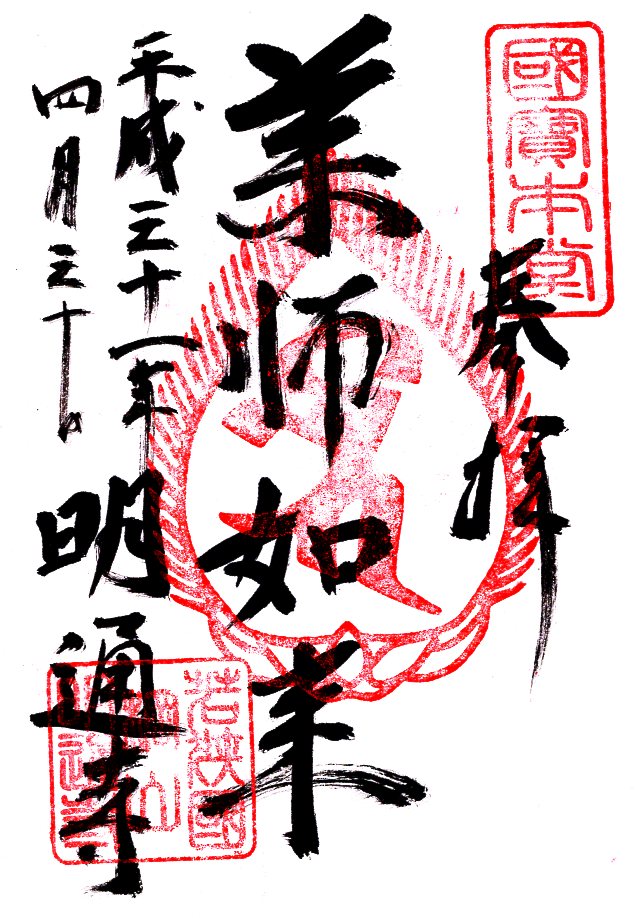 國寳本堂
奉拝
薬師如来
平成三十一年
四月三十日
明通寺
若狭國
棡山
明通寺